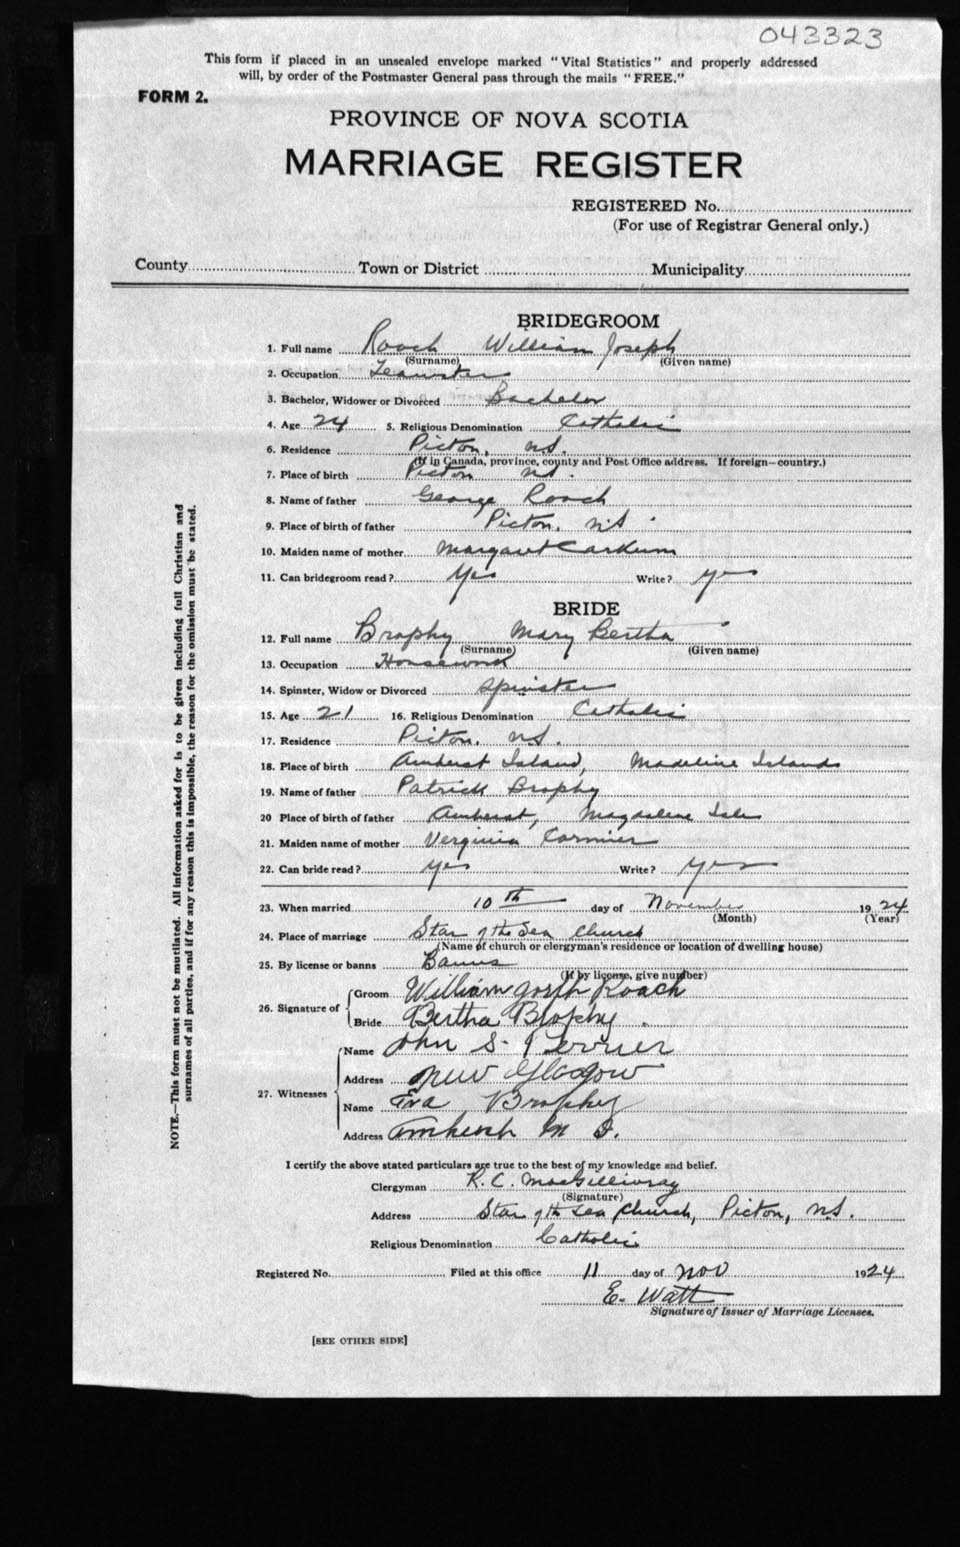 043323
This form if placed in an unsealed envelope marked "Vital Statistics" and properly addressed
will, by order of the Postmaster General pass through the mails "FREE."
FORM 2.
PROVINCE OF NOVA SCOTIA
MARRIAGE REGISTER
REGISTERED No.
(For use of Registrar General only.)
County Town or District Municipality
BRIDEGROOM
1. Full name Roach William Joseph
(Surname) (Given name)
2. Occupation Teamster
3. Bachelor, Widower or Divorced Bachelor
4. Age 24 5. Religious Denomination Catholic
6. Residence Picton, N.S.
(If in Canada, province, county and Post Office address. If foreign—country.)
7. Place of birth Picton N.S.
8. Name of father George Roach
9. Place of birth of father Picton, N.S.
10. Maiden name of mother Margaret
11. Can bridegroom read? Yes Write? Yes
BRIDE
12. Full name Brophy Mary Bertha
(Surname) (Given name)
13. Occupation Housework
14. Spinster, Widow or Divorced Spinster
15. Age 21 16. Religious Denomination Catholic
17. Residence Picton, N.S.
18. Place of birth Amherst Island, Madeline Islands
19. Name of father Patrick Brophy
20 Place of birth of father Amherst, Magdalene Isles
21. Maiden name of mother Verginia Cormier
22. Can bride read? Yes Write? Yes
23. When married 10th day of November 1924
(Month) (Year)
24. Place of marriage Star of the Sea Church
(Name of church or clergyman's residence or location of dwelling house)
25. By license or banns Banns
(If by license, give number)
26. Signature of Groom William Joseph Roach
Bride Bertha Brophy
27. Witnesses Name John S.
Address New Glasgow
Name Eva Brophy
Address Amherst M I.
I certify the above stated particulars are true to the best of my knowledge and belief.
Clergyman R. C. MacGillivray
(Signature)
Address Star of the Sea Church, Picton, N.S.
Religious Denomination Catholic
Registered No. Filed at this office 11 day of Nov 1924
E. Watt
Signature of Issuer of Marriage Licenses.
[SEE OTHER SIDE]
NOTE.—This form must not be mutilated. All information asked for is to be given including full Christian and
surnames of all parties, and if for any reason this is impossible, the reason for the omission must be stated.